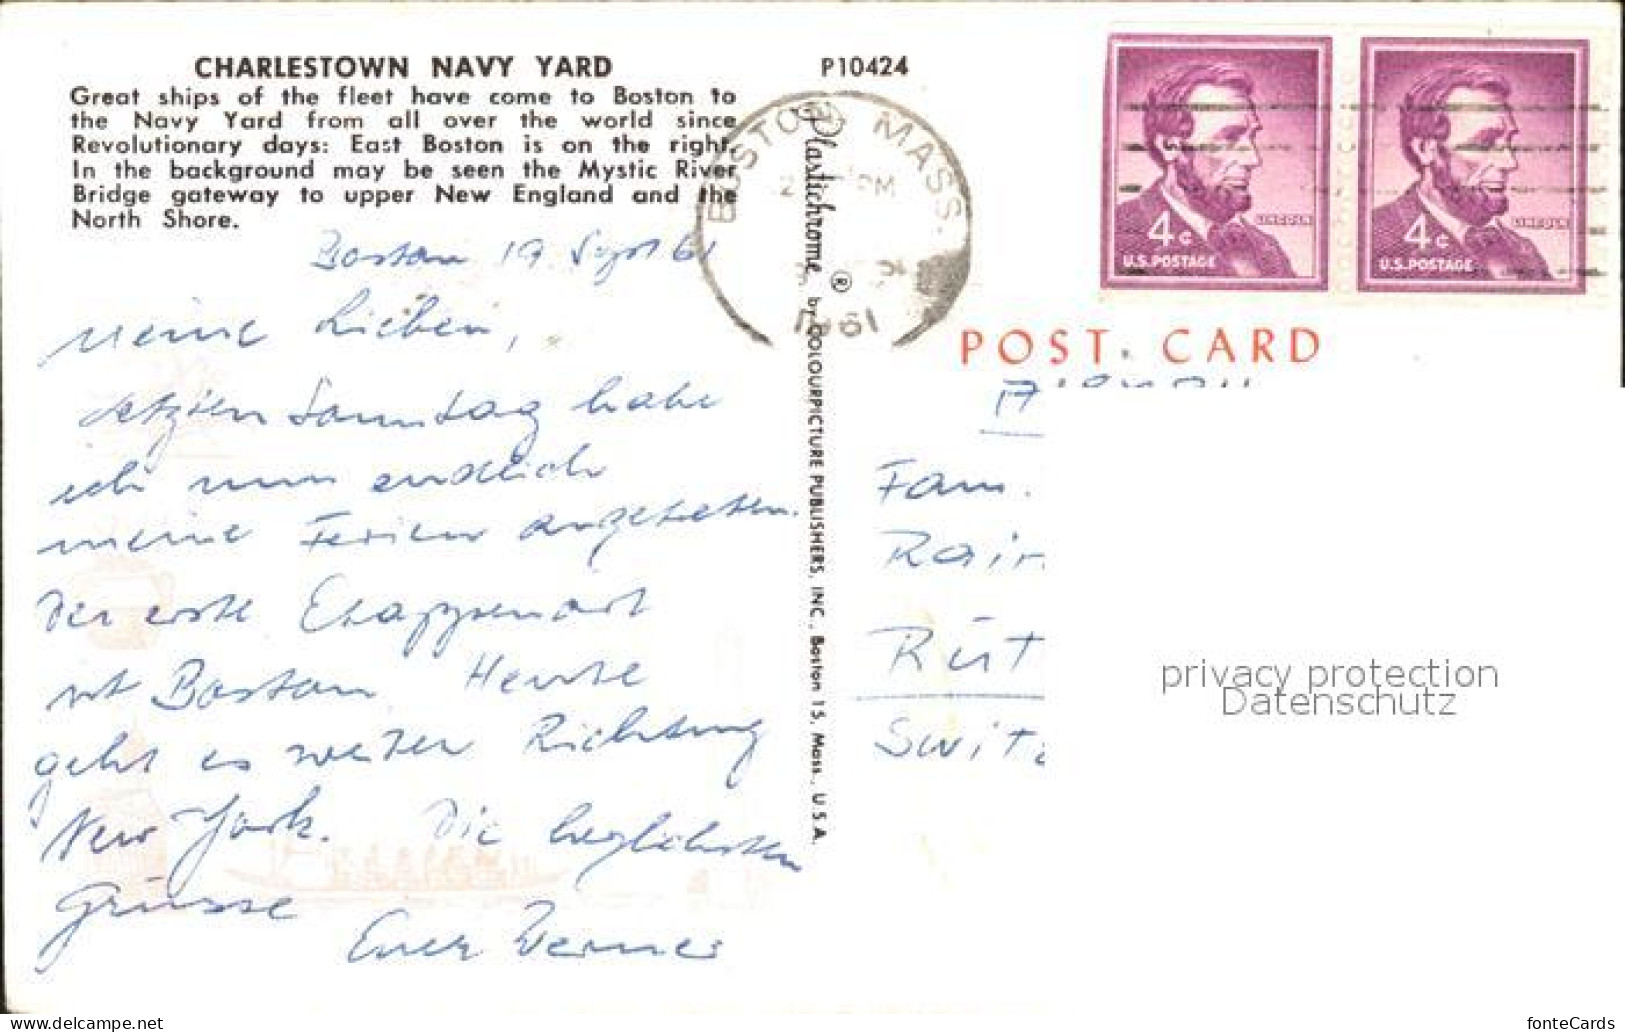 CHARLESTOWN NAVY YARD
Great ships of the fleet have come to Boston to
the Navy Yard from all over the world since
Revolutionary days: East Boston is on the right.
In the background may be seen the Mystic River
Bridge gateway to upper New England and the
North Shore.
P10424
BOSTON MASS.
PM
1961
4¢ LINCOLN
U.S. POSTAGE
4¢ LINCOLN
U.S. POSTAGE
POST CARD
Boston 19. Sept 61
Meine Lieben,
Letzten Samstag habe
ich nun endlich
meine Ferien angetreten.
Der erste Etappenort
ist Boston Heute
geht es weiter Richtung
New York. Die herzlichsten
Grüsse
Euer Werner
Plastichrome ® by COLOURPICTURE PUBLISHERS, INC., Boston 15, Mass., U.S.A.
Fam.
Rair
Rüt
Switz
privacy protection
Datenschutz
fonteCards